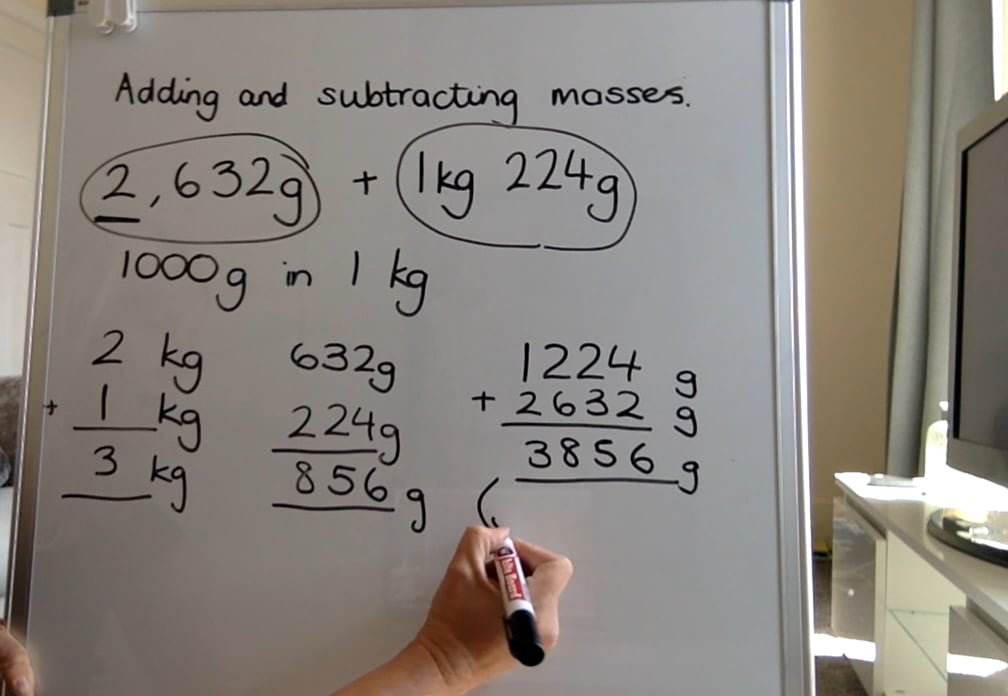 Adding and subtracting masses.
2,632g + 1kg 224g
1000g in 1 kg
2 kg
+ 1 kg
3 kg
632g
224g
856g
1224 g
+ 2632 g
3856 g
(